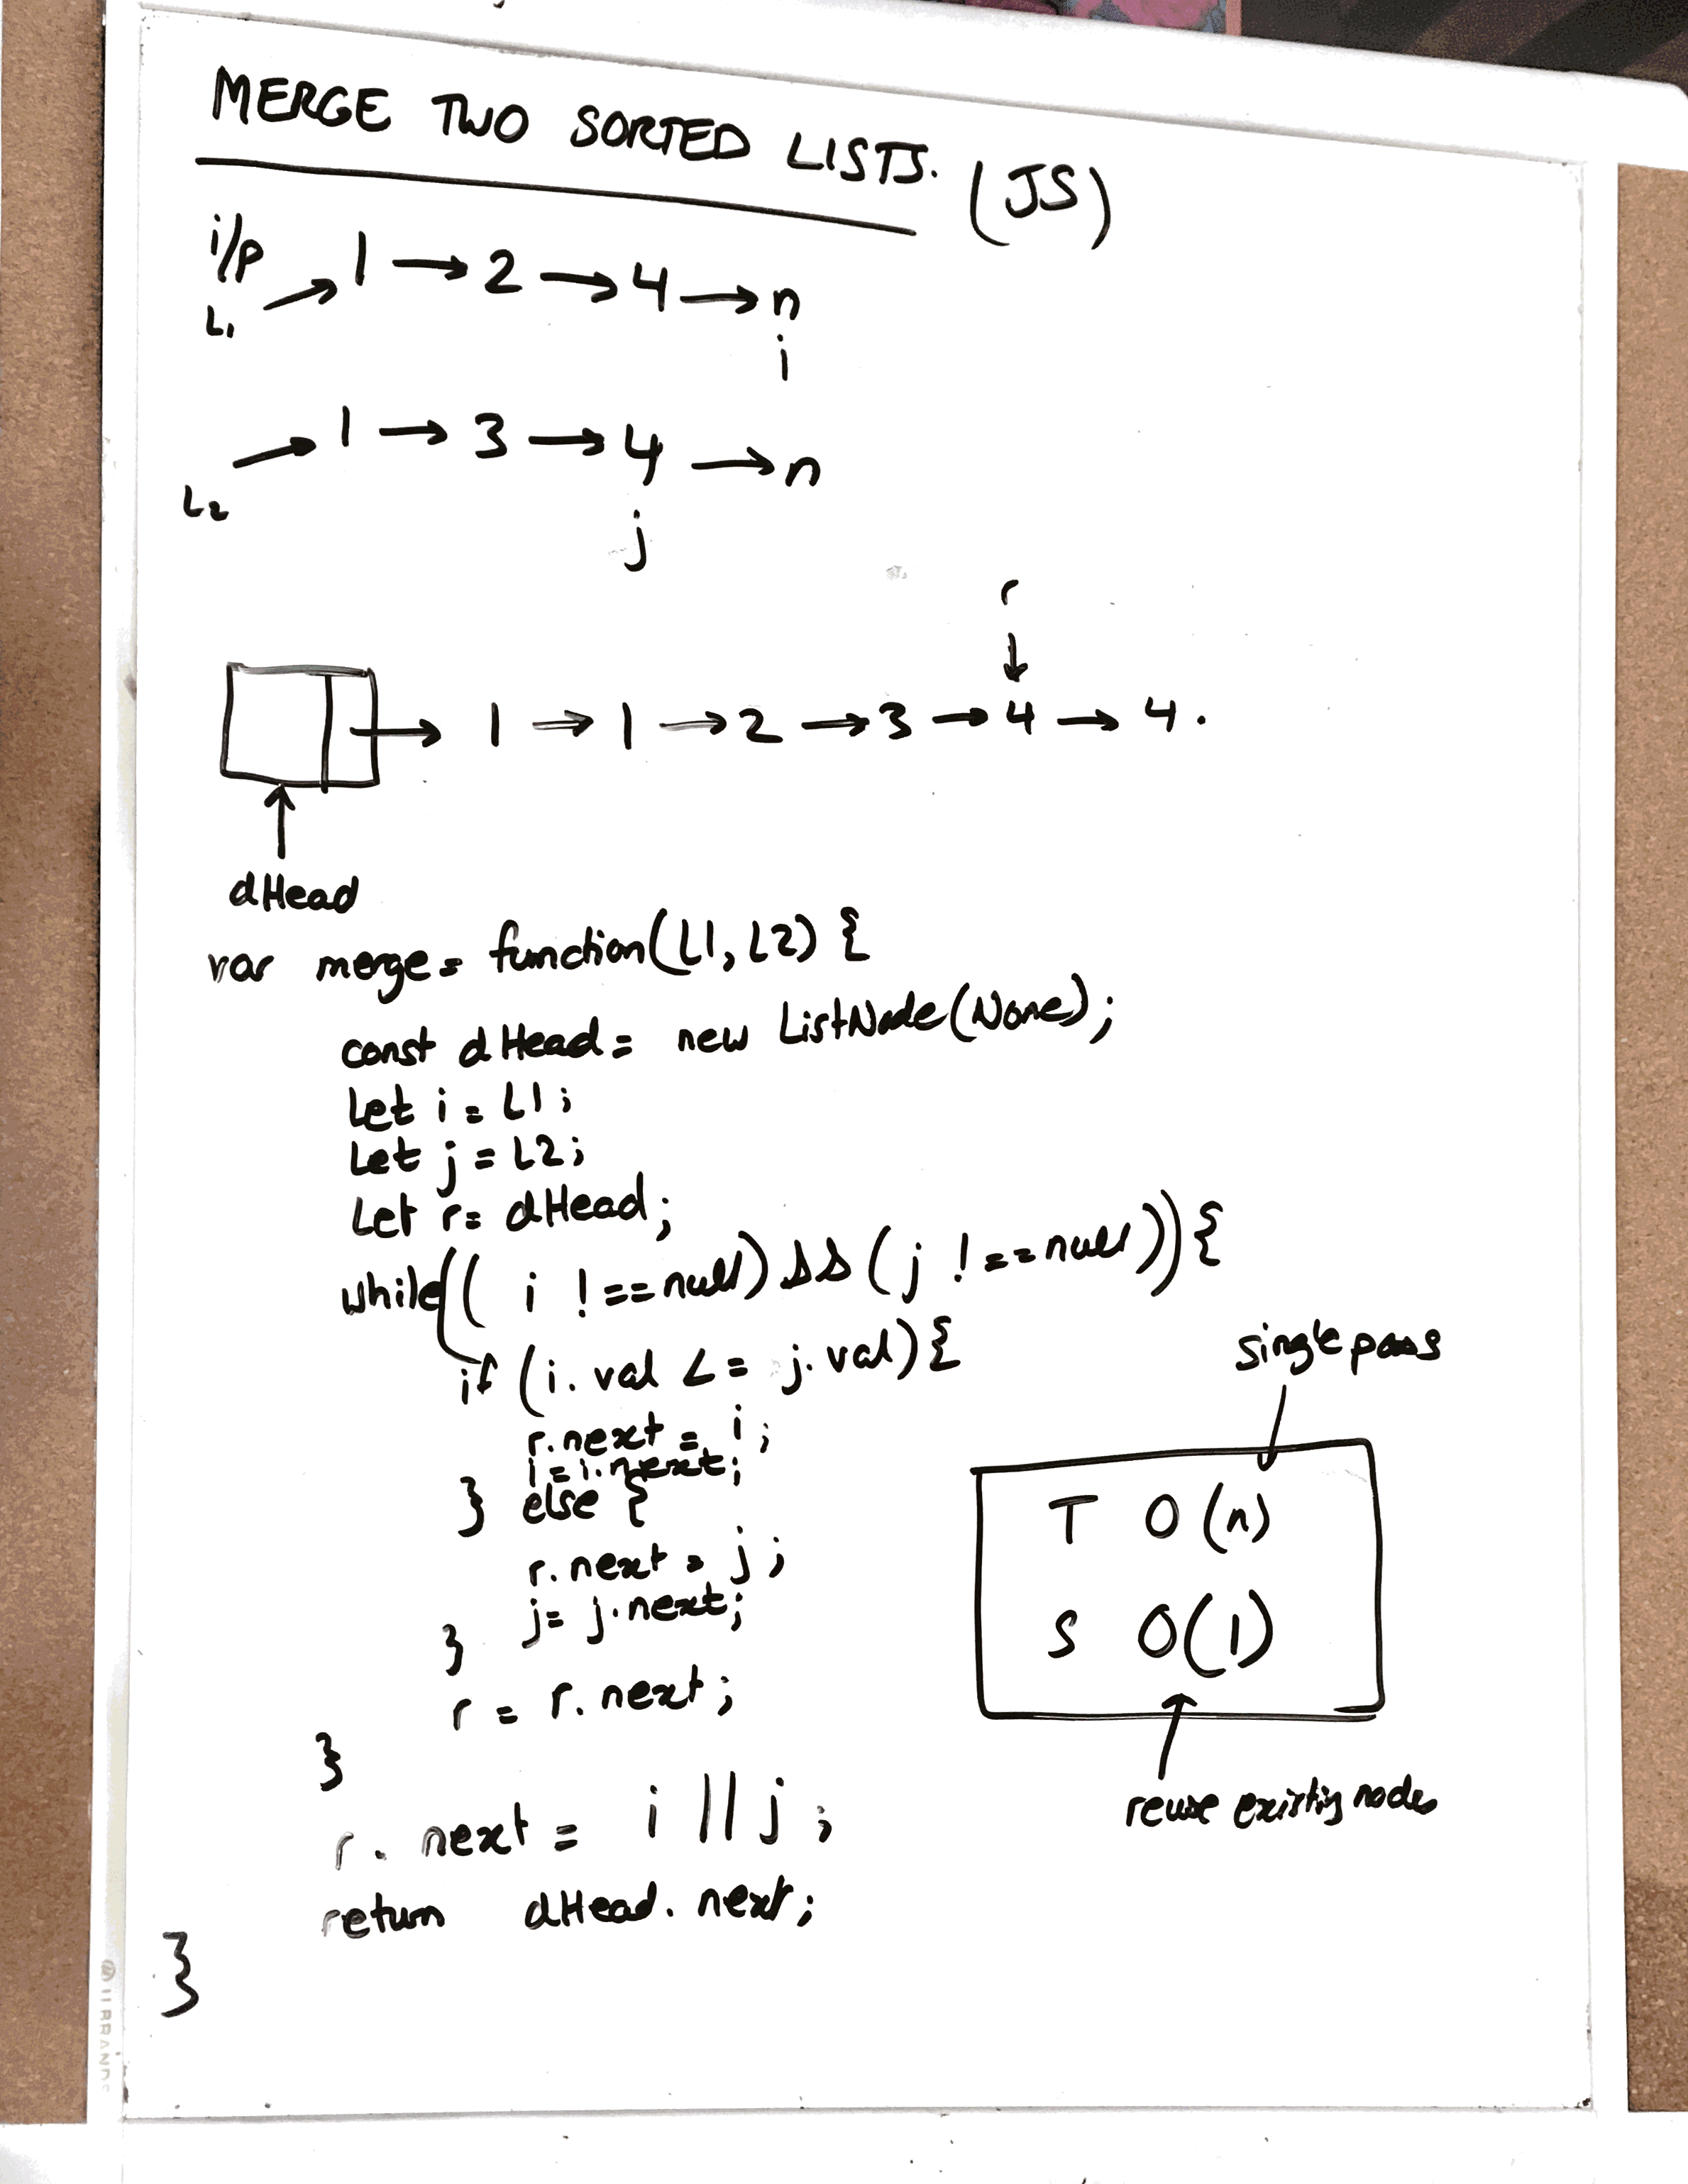 MERGE TWO SORTED LISTS. (JS)
i/p
L1 → 1 → 2 → 4 → n
i
L2 → 1 → 3 → 4 → n
j
r
↓
→ 1 → 1 → 2 → 3 → 4 → 4.
↑
dHead
var merge = function(L1, L2) {
const dHead = new ListNode(None);
Let i = L1;
Let j = L2;
Let r = dHead;
while(( i !== null) && (j !== null)) {
if (i.val <= j.val) {
r.next = i;
i = i.next;
} else {
r.next = j;
j = j.next;
}
r = r.next;
}
r.next = i || j;
return dHead.next;
}
single pass
T O(n)
S O(1)
reuse existing nodes